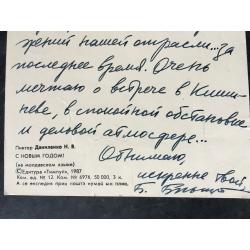 жений нашей отрасли...за
последнее время. Очень
мечтаю о встрече в Киши-
неве, в спокойной обстановке
и деловой атмосфере...
Обнимаю,
искренне твой
Пиктор Даниленко Н. В.
С НОВЫМ ГОДОМ!
(на молдавском языке)
© Едитура «Тимпул», 1987
Ком. ед. № 12. Ком. № 6974. 50 000. 3 к.
А се експедия прин поштэ нумай ын плик.